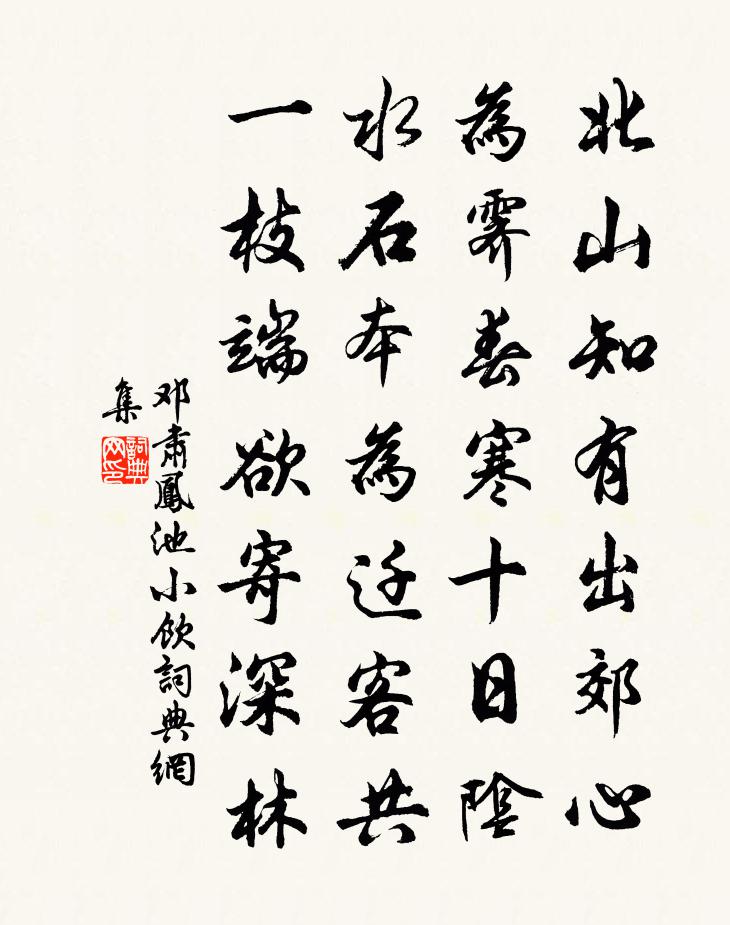 北山知有出郊心
為霽春寒十日陰
水石本為迂客共
一枝端欲寄深林
邓肅鳳池小飲詞典網
集
詞典
网印